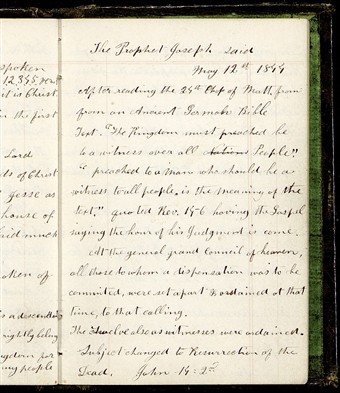 spoken
12,345,
it is Christ.
in the first
Lord
of Christ
Jesse as
house of
said much
oken of
is a descendant
rightly belong
gdom for
ny people
The Prophet Joseph said
May 12th 1844
After reading the 24th Chap of Matt, from
from an Ancient German Bible
Text. "The Kingdom must preached be
to a witness over all Nations People"
"I preached to a man who should be a
witness to all people. is the meaning of the
text." quoted Rev. 14-6 having the Gospel
saying the hour of his Judgment is come.
At the general grand Council of heaven,
all those to whom a dispensation was to be
commited, were set apart & ordained at that
time, to that calling.
The Twelve also as witnesses were ordained.
Subject changed to Resurrection of the
Dead. John 14-2nd